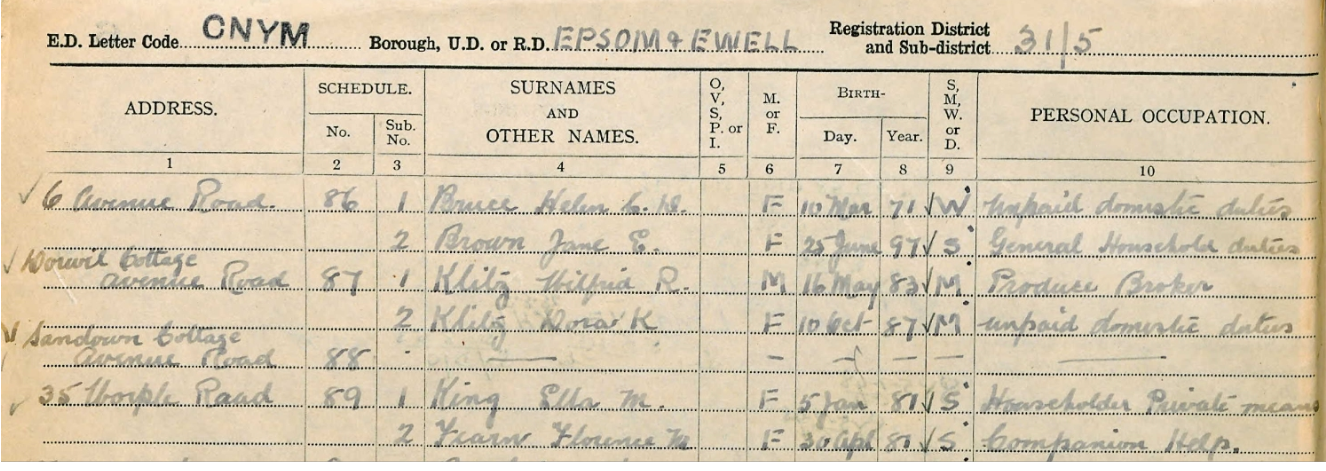 E.D. Letter Code CNYM Borough, U.D. or R.D. EPSOM & EWELL Registration District and Sub-district 31/5
ADDRESS. SCHEDULE. No. Sub. No. SURNAMES AND OTHER NAMES. O, V, S, P. or I. M. or F. BIRTH- Day. Year. S, M, W. or D. PERSONAL OCCUPATION.
1 2 3 4 5 6 7 8 9 10
6 Avenue Road. 86 1 Bruce Helen C. F 10 Mar 71 W unpaid domestic duties
2 Brown Jane E. F 25 June 97 S General Household duties
Dorwil Cottage
Avenue Road 87 1 Klitz Wilfrid R. M 16 May 83 M Produce Broker
2 Klitz Dora K F 10 Oct 87 M unpaid domestic duties
Sandown Cottage
Avenue Road 88 - — - - - - —
35 Worple Road 89 1 King Ella M. F 5 Jan 81 S Householder Private means
2 Fearn Florence M F 30 Apl 81 S Companion Help.